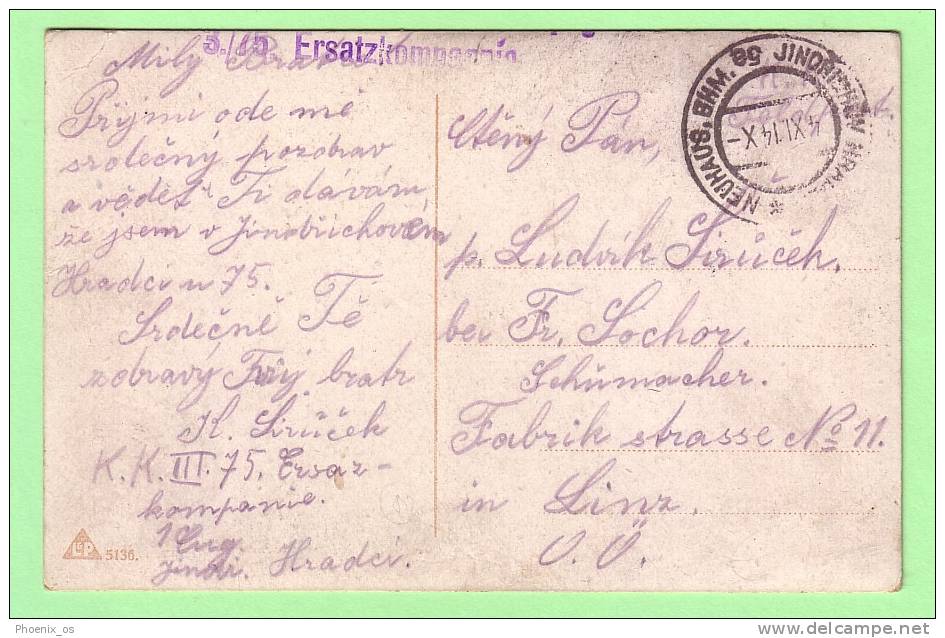 3./75 Ersatzkompagnie
Milý
Přijmi ode mě
srdečný pozdrav
a vědět Ti dávám
že jsem v Jindřichovém
Hradci u 75.
Srdečně Tě
zdravý Tvůj bratr
K. Sirůček
K. K. III. 75. Ersaz-
kompanie.
1 Cug.
Jindr. Hradci.
L.P. 5136.
NEUHAUS, BHM. 5a JINDŘICHŮV HRADEC *
4 XI 14 X-
Ctěný Pán,
p. Ludvík Sirůček.
bei Fr. Sochor.
Schümacher.
Fabrik strasse No 11.
in Linz
O. Ö.
Phoenix_os
www.delcampe.net